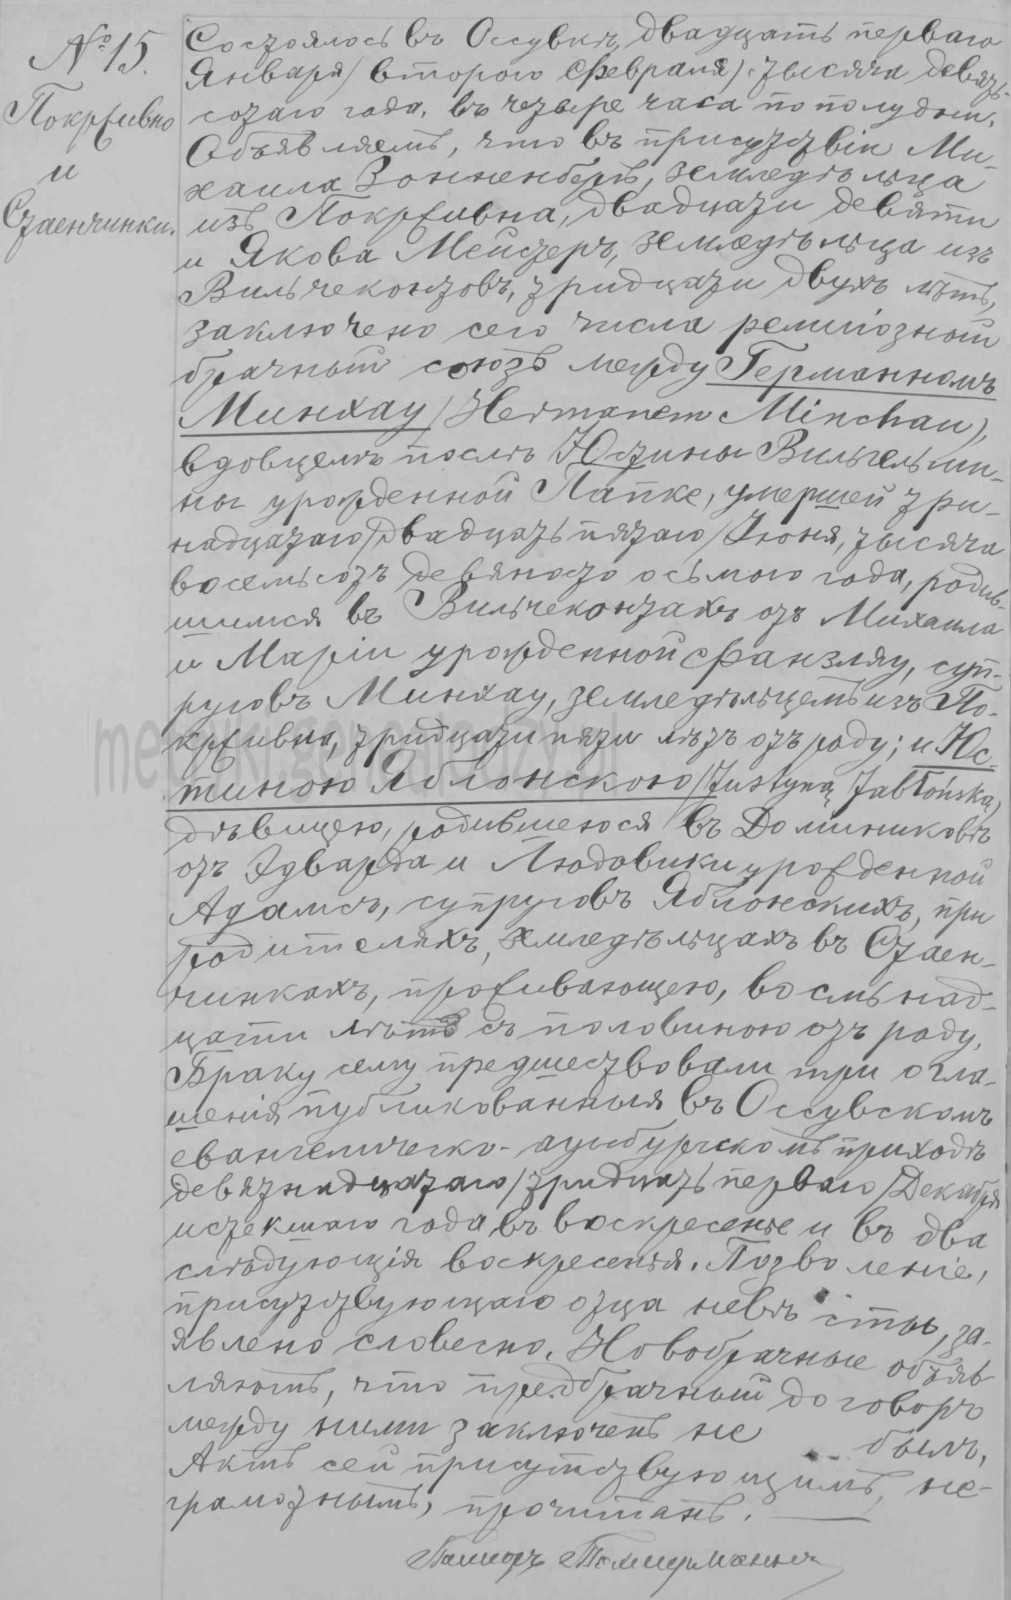 № 15.
Покрживно
и
Стаенчинки.
Состоялось въ Оссувкѣ, двадцать перваго
Января / второго Февраля / тысяча девять-
сотаго года, въ четыре часа по полудни.
Объявляемъ, что въ присутствіи Ми-
хаила Зонненбергъ, земледѣльца
изъ Покрживна, двадцати девяти
и Якова Мейстеръ, земледѣльца изъ
Вильчеконтовъ, тридцати двухъ лѣтъ,
заключено сего числа религіозный
брачный союзъ между Германномъ
Минхау / Hermanem Minchau),
вдовцемъ послѣ Юстины Вильгельми-
ны урожденной Папке, умершей три-
надцатаго / двадцать пятаго / Іюня, тысяча
восемьсотъ девяносто осьмого года, родив-
шимся въ Вильчеконтахъ отъ Михаила
и Маріи урожденной Фанзляу, суп-
руговъ Минхау, земледѣльцемъ изъ По-
крживна, тридцати пяти лѣтъ отъ роду; и Юс-
тиною Яблонскою / Justyną Jabłońską)
дѣвицею, родившеюся въ Доминиковѣ
отъ Эдварда и Людовики урожденной
Адамсъ, супруговъ Яблонскихъ, при
родителяхъ, земледѣльцахъ въ Стаен-
чинкахъ, проживающею, восьмнад-
цати лѣтъ съ половиною отъ роду.
Браку сему предшествовали три огла-
шенія публикованныя въ Оссувскомъ
евангелическо-аугсбургскомъ приходѣ
девятнадцатаго / тридцать перваго / Декабря
истекшаго года въ воскресенье и въ два
слѣдующія воскресенья. Позволеніе,
присутствующаго отца невѣсты, за-
явлено словесно. Новобрачные объяв-
ляютъ, что предбрачный договоръ
между ними заключенъ не былъ.
Актъ сей присутствующимъ, не-
грамотнымъ, прочитанъ.
Пасторъ